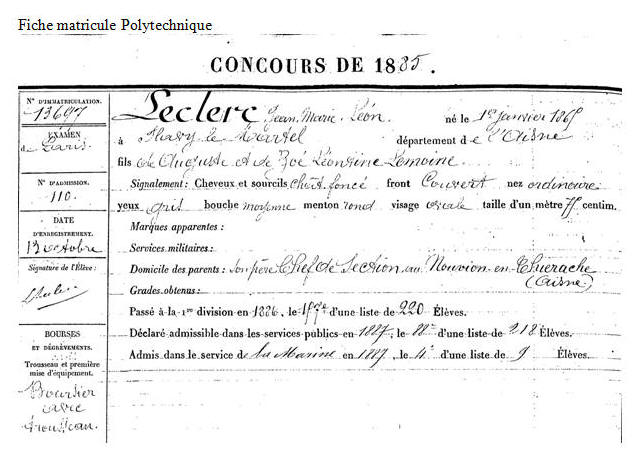 Fiche matricule Polytechnique
CONCOURS DE 1885.
N° D'IMMATRICULATION.
13697
EXAMEN
de Paris
N° D'ADMISSION.
110.
DATE
D'ENREGISTREMENT.
13 octobre
Signature de l'Élève:
BOURSES
ET DÉGRÈVEMENTS.
Trousseau et première
mise d'équipement.
Boursier
avec
trousseau.
Leclerc Jean Marie Léon né le 1er janvier 1865
à Flavy le Martel département de l'Aisne
fils de Auguste et de Zoé Léontine Lemoine.
Signalement: Cheveux et sourcils chât. foncé front Couvert nez ordinaire
yeux gris bouche moyenne menton rond visage ovale taille d'un mètre centim.
Marques apparentes:
Services militaires:
Domicile des parents: Son père Chef de Section au Nouvion en Thierache
(Aisne)
Grades obtenus:
Passé à la 1re division en 1886, le d'une liste de 220 Élèves.
Déclaré admissible dans les services publics en 1887, le 88e d'une liste de 218 Élèves.
Admis dans le service de la Marine en 1887, le 4e d'une liste de 9 Élèves.